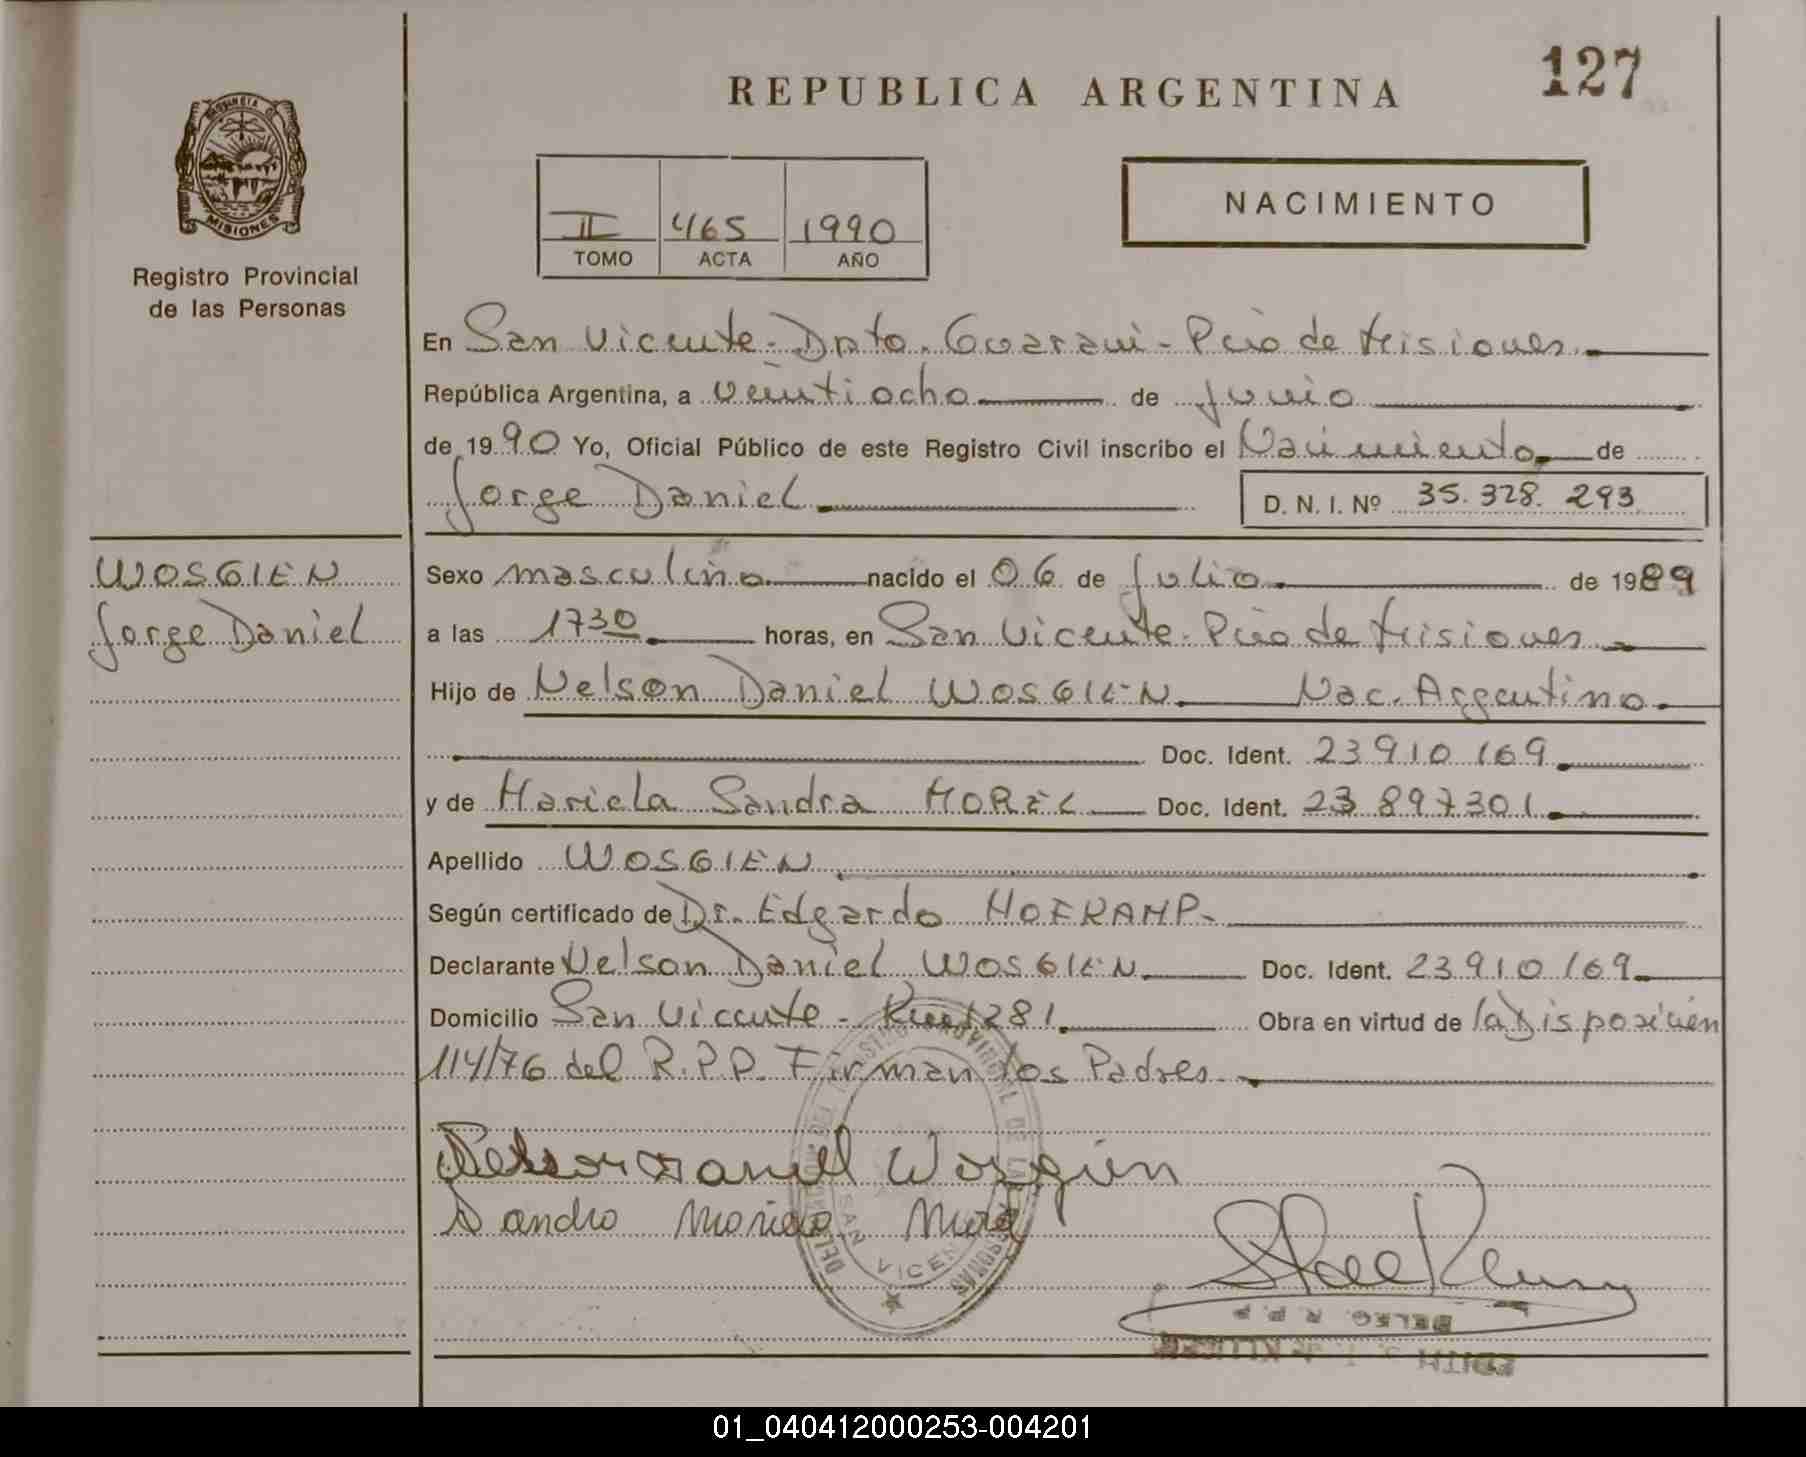 127
REPUBLICA ARGENTINA
PROVINCIA DE
MISIONES
Registro Provincial
de las Personas
NACIMIENTO
II 465 1990
TOMO ACTA AÑO
En San Vicente - Dpto. Guarani - Pcia de Misiones.
República Argentina, a veintiocho de Junio
de 1990 Yo, Oficial Público de este Registro Civil inscribo el Nacimiento de
Jorge Daniel D. N. I. Nº 35.328.293
WOSGIEN
Jorge Daniel
Sexo masculino nacido el 06 de Julio de 1989
a las 1730 horas, en San Vicente - Pcia de Misiones.
Hijo de Nelson Daniel WOSGIEN. Nac. Argentino.
Doc. Ident. 23910169
y de Mariela Sandra MOREL Doc. Ident. 23897301
Apellido WOSGIEN
Según certificado de Dr. Edgardo HOFKAMP-
Declarante Nelson Daniel WOSGIEN Doc. Ident. 23910169
Domicilio San Vicente - Km 1281. Obra en virtud de la Disposición
114/76 del R.P.P. Firman los Padres.
Nelson Daniel Wosgien
DELEG. R.P.P
01_040412000253-004201